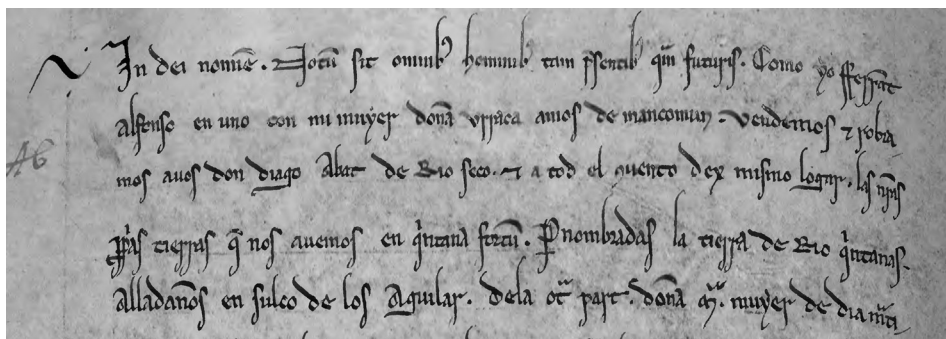 In dei nomīe. Notū sit omnibꝰ hominibꝰ tam p̄sentibꝰ qm̄ futuris. Como yo fferrāt
Alfonso en uno con mi muyer donā urraca amos de mancomun. Vendemos ⁊ robra
AB
mos auos don diago Abat de Rio seco. ⁊ a tod el conuento dex mismo logar. las nr̄as
tierras q̄ nos auemos en qⁱntana fortū. Pnombradas la tierra de Rio qⁱntanas.
Alladanōs en sulco de los Aguilar. dela otᵃ part. donā mᵃ. muyer de dia